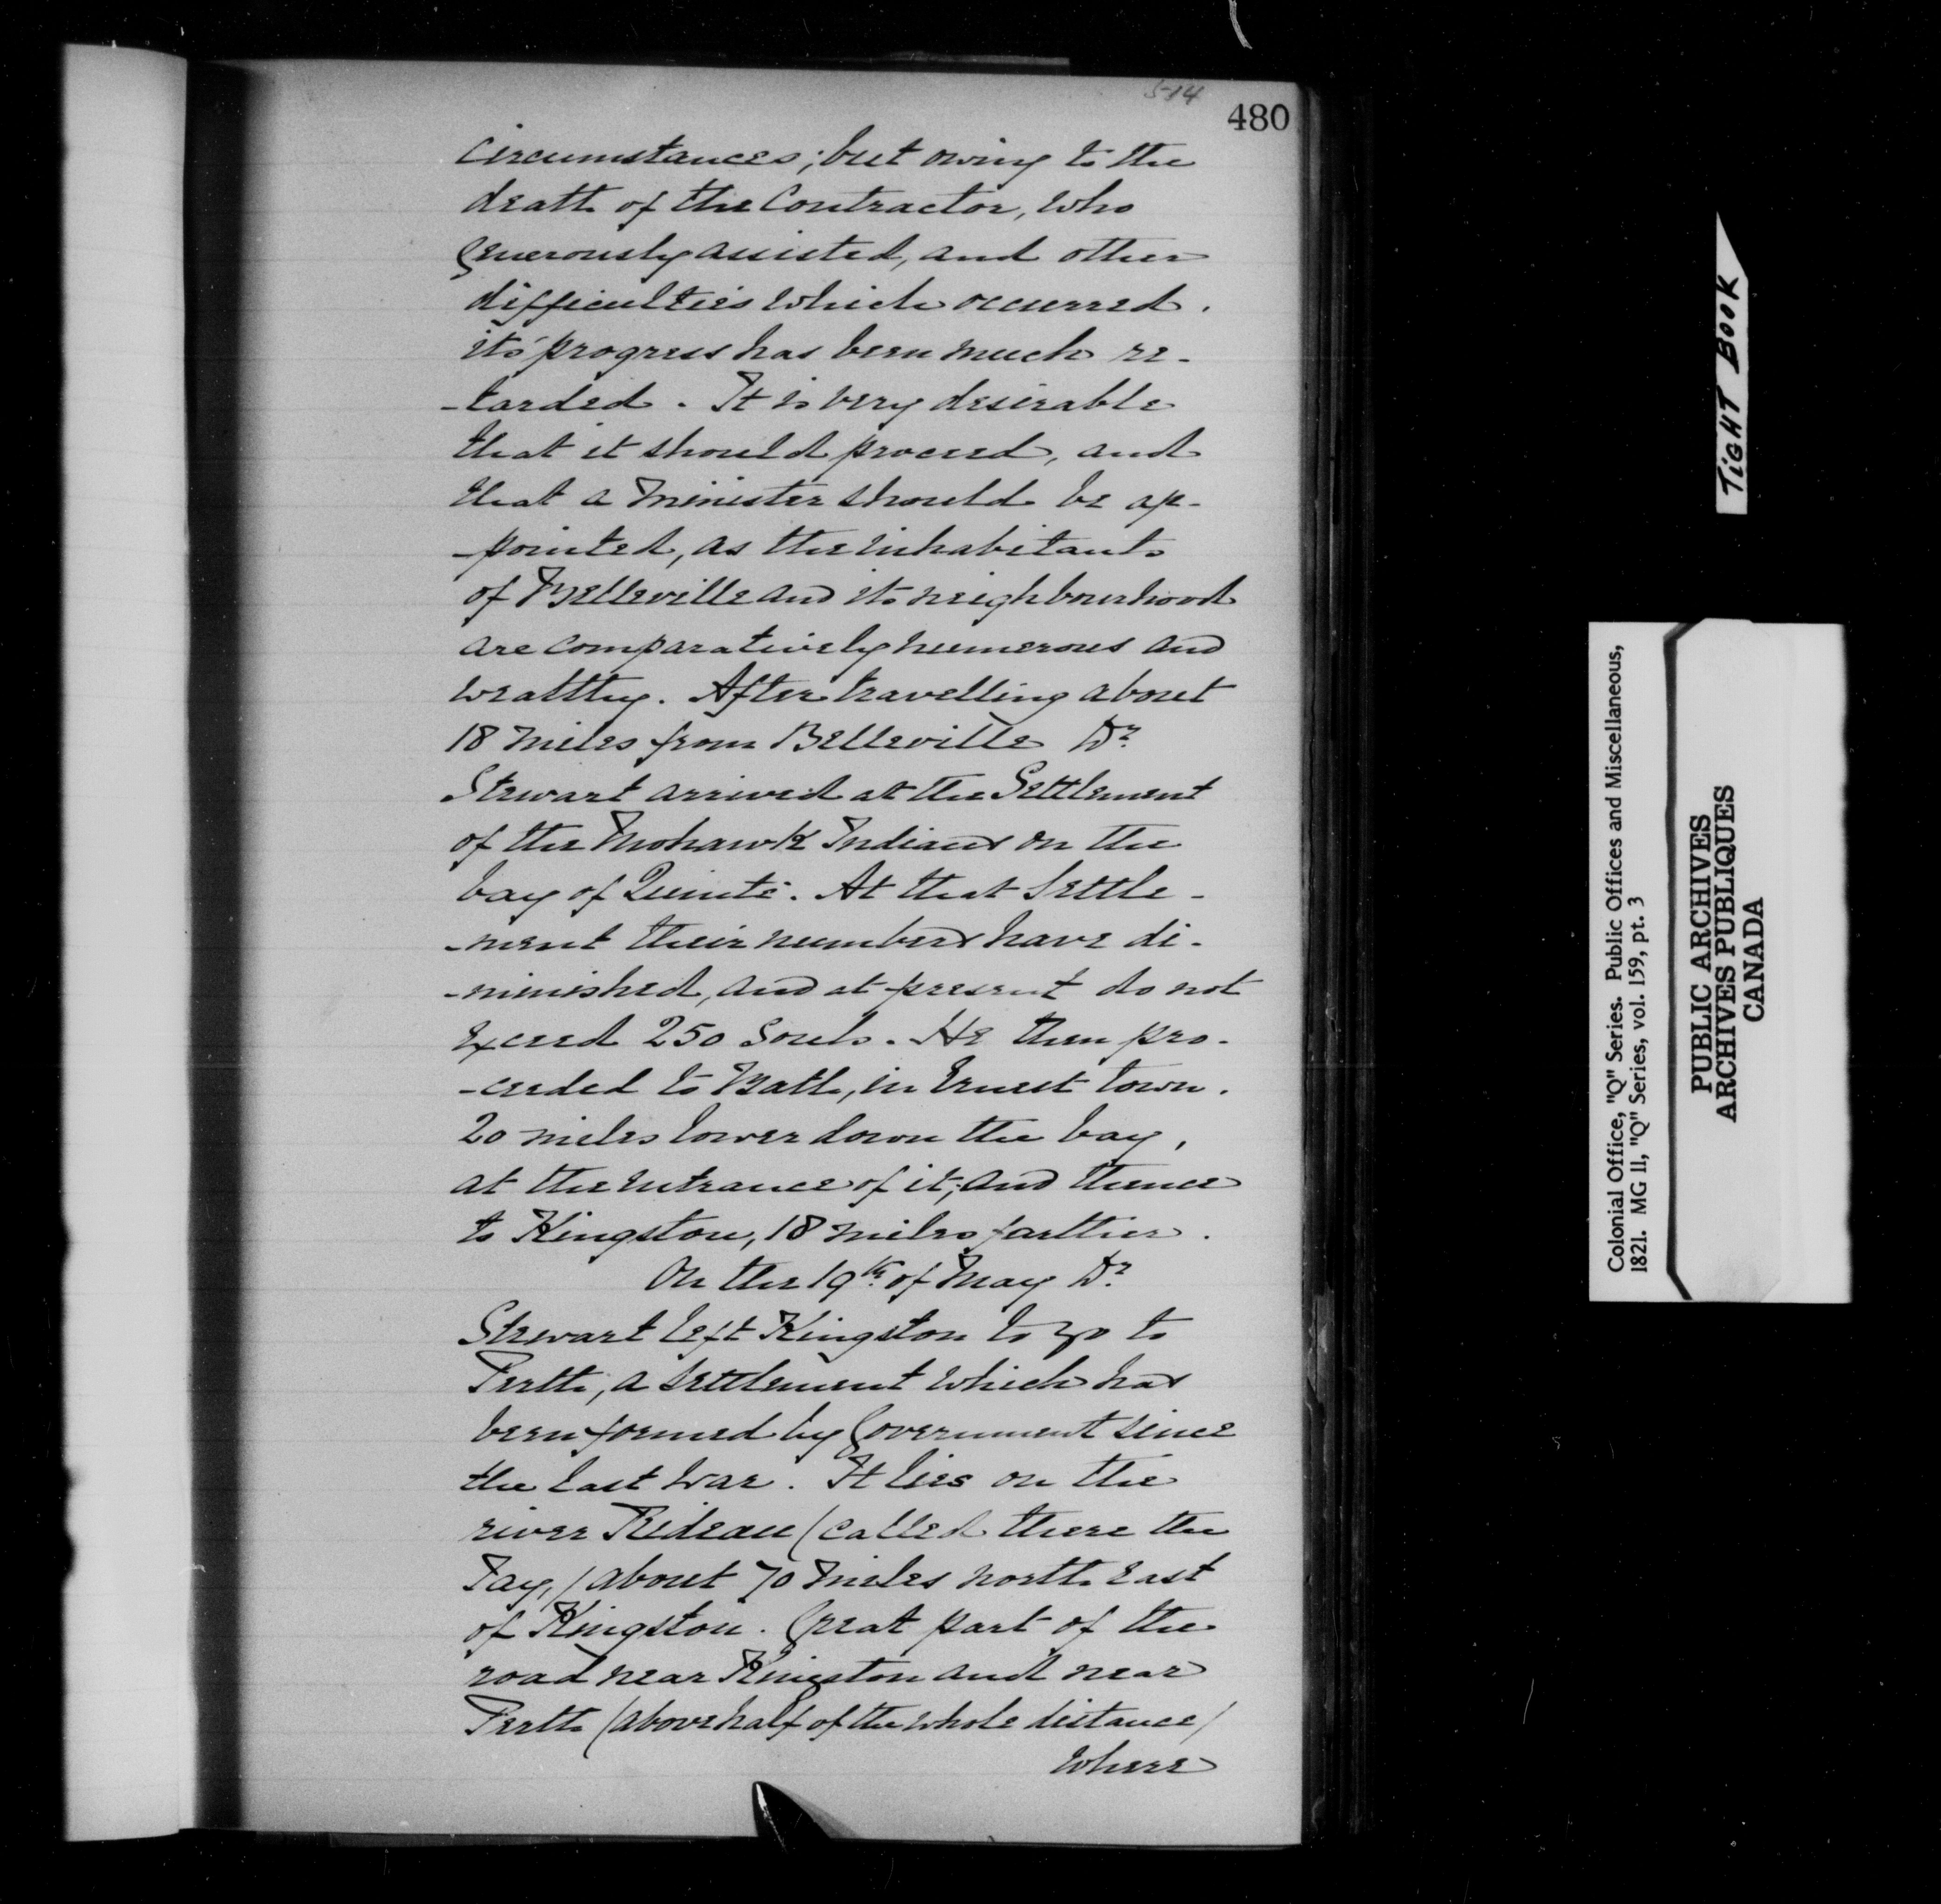 514
480
circumstances; but owing to the
death of the Contractor, who
generously assisted, and other
difficulties which occurred.
its progress has been much re-
-tarded. It is very desirable
that it should proceed, and
that a Minister should be ap-
-pointed, as the inhabitants
of Belleville and its neighbourhood
are comparatively numerous and
wealthy. After travelling about
18 miles from Belleville Dr.
Stewart arrived at the Settlement
of the Mohawk Indians on the
bay of Quinté. At that Settle-
-ment their numbers have di-
-minished, and at present do not
exceed 250 Souls. He then pro-
-ceeded to Bath, in Ernest town.
20 miles lower down the bay,
at the entrance of it; and thence
to Kingston, 18 miles farther.
On the 19th of May Dr.
Stewart left Kingston to go to
Perth, a settlement which has
been formed by Government since
the last war. It lies on the
river Rideau (called there the
Tay,) about 70 miles north east
of Kingston. Great part of the
road near Kingston and near
Perth (above half of the whole distance)
where
TIGHT BOOK
Colonial Office, "Q" Series. Public Offices and Miscellaneous,
1821. MG 11, "Q" Series, vol. 159, pt. 3
PUBLIC ARCHIVES
ARCHIVES PUBLIQUES
CANADA